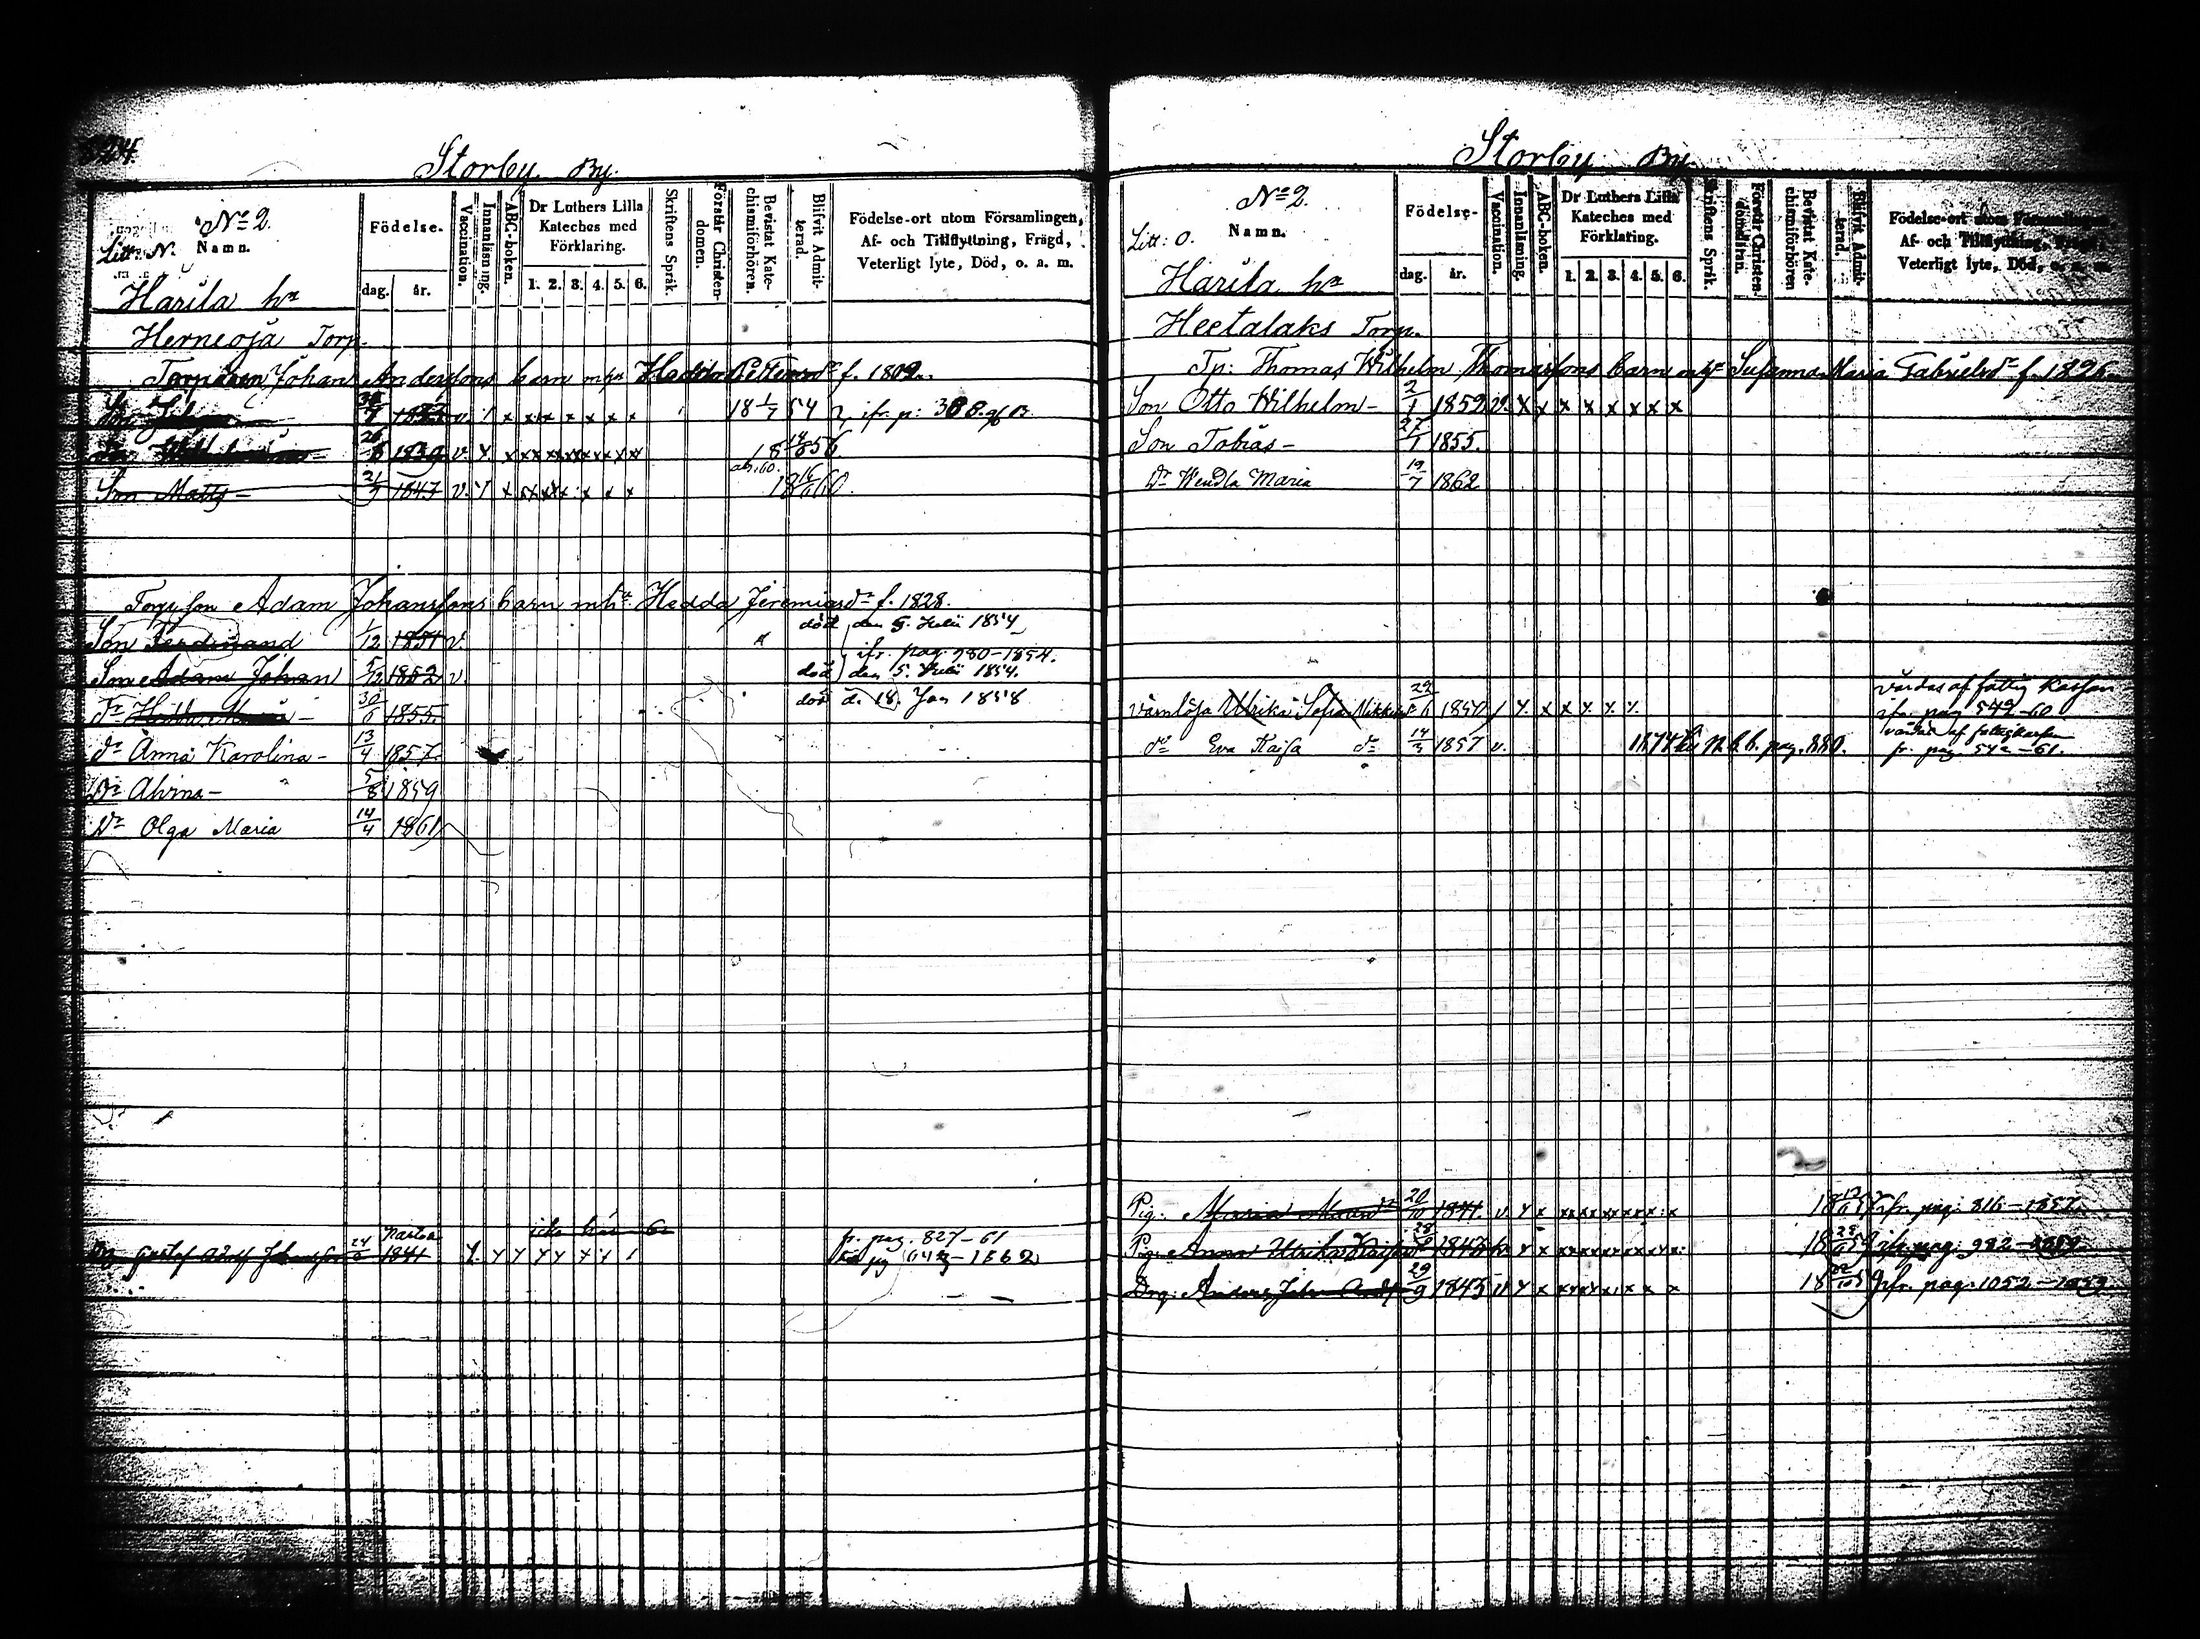 324.
Storby By.
No 2.
Litt: N.
Namn.
Födelse.
dag. år.
Vaccination.
Innanläsning.
ABC-boken.
Dr Luthers Lilla
Kateches med
Förklaring.
1. 2. 3. 4. 5. 6.
Skriftens Språk.
Förstår Christen-
domen.
Bevistat Kate-
chismiförhören.
Blifvit Admit-
terad.
Födelse-ort utom Församlingen,
Af- och Tillflyttning, Frägd,
Veterligt lyte, Död, o. a. m.
Harila hn
Herneoja Torp.
Torparen Johan Anderssons barn mhu Hedda Pettersdr f. 1809.
Son Johan 30/7 v. 18 1/7 54
26/8 1839 v. 18 14/8 56.
Son Matts 21/9 1847 v. 18 16/6 60.
Torp. son Adam Johanssons barn mhu Hedda Jeremiasdr f. 1828.
Son Ferdinand 1/12 1851 v. död den 5 Julii 1854
ifr. pag. 980-1854.
Son Adam Johan 5/12 1852 v. död den 5. Julii 1854.
Dr Hedda Maria 30/6 1855. död d. 18. Jan 1858
dr Anna Karolina 13/4 1857.
Dr Alvina 5/8 1859
Dr Olga Maria 14/4 1861
Dg Gustaf Adolf Johansson 24/6 1841
fr. pag. 827-61
Storby By.
No 2.
Litt: O.
Namn.
Födelse.
dag. år.
Vaccination.
Innanläsning.
ABC-boken.
Dr Luthers Lilla
Kateches med
Förklaring.
1. 2. 3. 4. 5. 6.
Skriftens Språk.
Förstår Christen-
domen.
Bevistat Kate-
chismiförhören
Blifvit Admit-
terad.
Födelse-ort utom Församlingen,
Af- och Tillflyttning, Frägd,
Veterligt lyte, Död, o. a. m.
Harila hn
Heetalaks Torp.
Tp: Thomas Wilhelm Thomassons barn mhu Susanna Maria Gabrielsdr f. 1826.
Son Otto Wilhelm 2/1 1852 v.
Son Tobias 27/1 1855.
Dr Wendla Maria 19/7 1862
Värnlösa Ulrika Sofia 1850 vårdas af fattig kassan
ifr. pag 542-60.
do Eva Kaisa do 14/3 1857 v. 1874 N. k. b. pag. 880. vårdas af fattigkassan
fr. pag. 542-61.
Pig. Maria 20/10 1841. v ifr. pag: 816-1857.
Pig. Anna Ulrika Kaisa 28 ifr. pag: 982-1859.
Dng. Anders Johan 29/9 1843 v ifr. pag: 1052-1859